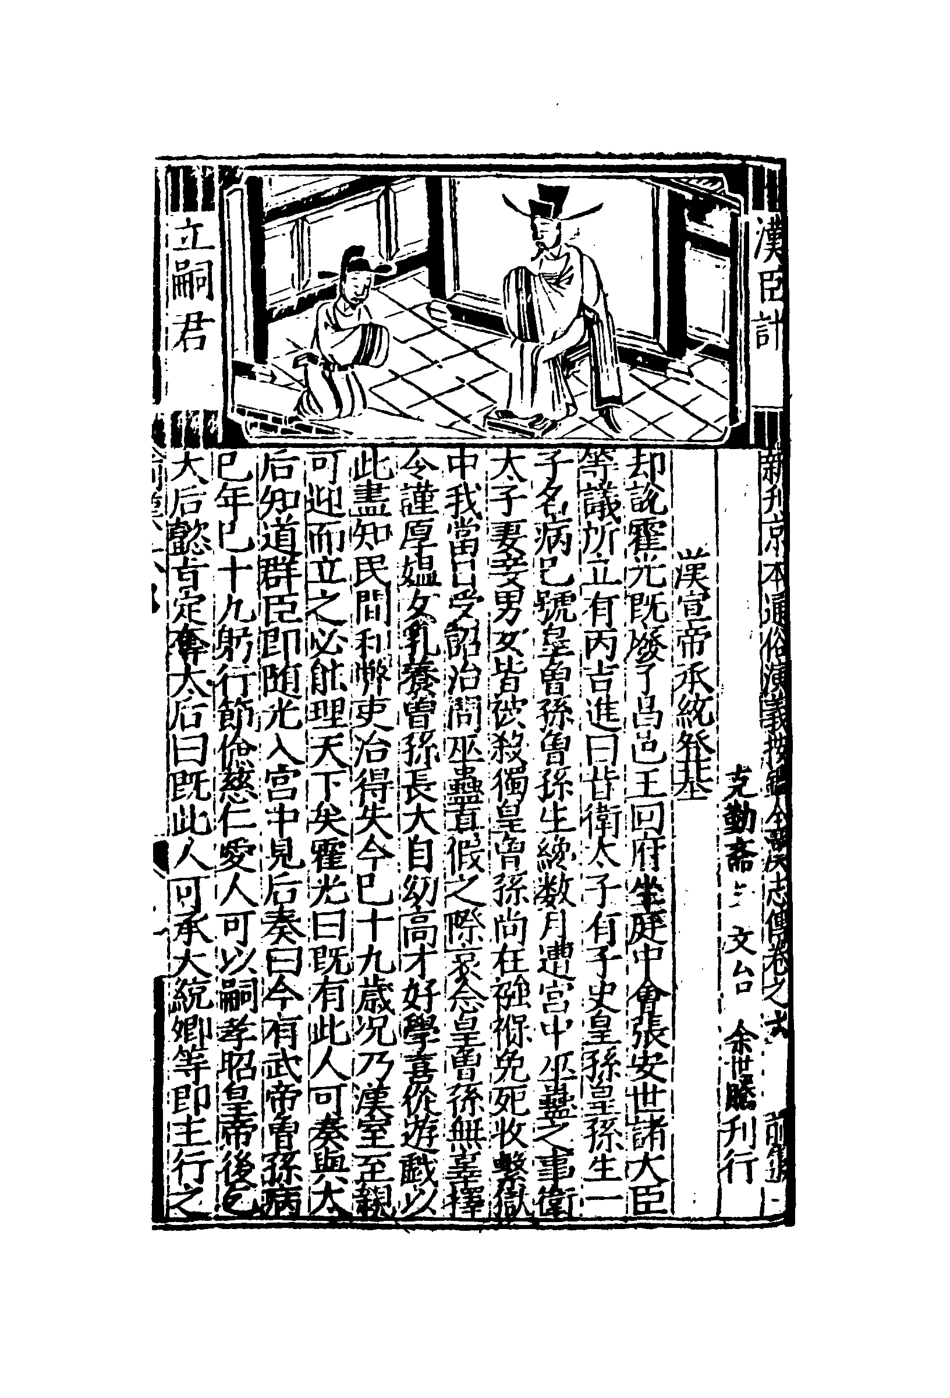 漢臣計
立嗣君
新刊京本通俗演義按鑑全漢志傳卷之六
克勤斋 文台 余世騰刊行
漢宣帝承統登基
却説霍光既廢了昌邑王回府坐庭中會張安世諸大臣
等議所立有丙吉進曰昔衛太子有子史皇孫皇孫生一
子名病已號皇曾孫曾孫生纔数月遭宮中巫蠱之事衛
太子妻妾男女皆彼殺獨皇曾孫尚在襁褓免死收繫獄
中我當日受詔治問巫蠱真假之際哀念皇曾孫無辜擇
令謹厚媼女乳養曽孫長大自幼高才好學喜從遊戯以
此盡知民間利弊吏治得失今巳十九歳况乃漢室至親
可迎而立之必能理天下矣霍光曰既有此人可奏與太
后知道群臣即随光入宮中見后奏曰今有武帝曾孫病
巳年巳十九躬行節儉慈仁愛人可以嗣孝昭皇帝後乞
太后懿旨定奪太后曰既此人可承大統卿等即主行之